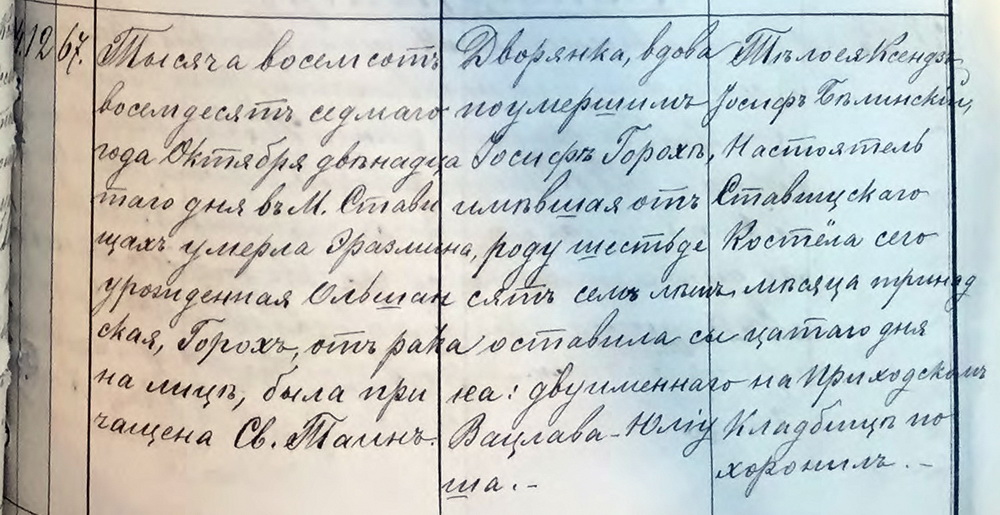 12 67. Тысяча восемсотъ
восемдесятъ седмаго
года Октября двѣнадца
таго дня въ М. Стави
щахъ умерла Эразмина
урожденная Ольшан
ская, Горохъ, отъ рака
на лицѣ, была при
чащена Св. Таинъ.
Дворянка, вдова
поумершимъ
Іосифѣ Горохъ,
имѣвшая отъ
роду шестьде
сятъ семь лѣтъ
оставила сы
на: двуименнаго
Вацлава-Юлі
ша.-
Тѣло ея Ксендзъ
Іосифъ Бѣлинскій,
Настоятель
Ставищскаго
Костёла сего
мѣсяца тринад
цатаго дня
на Приходскомъ
Кладбищѣ по
хоронилъ.-